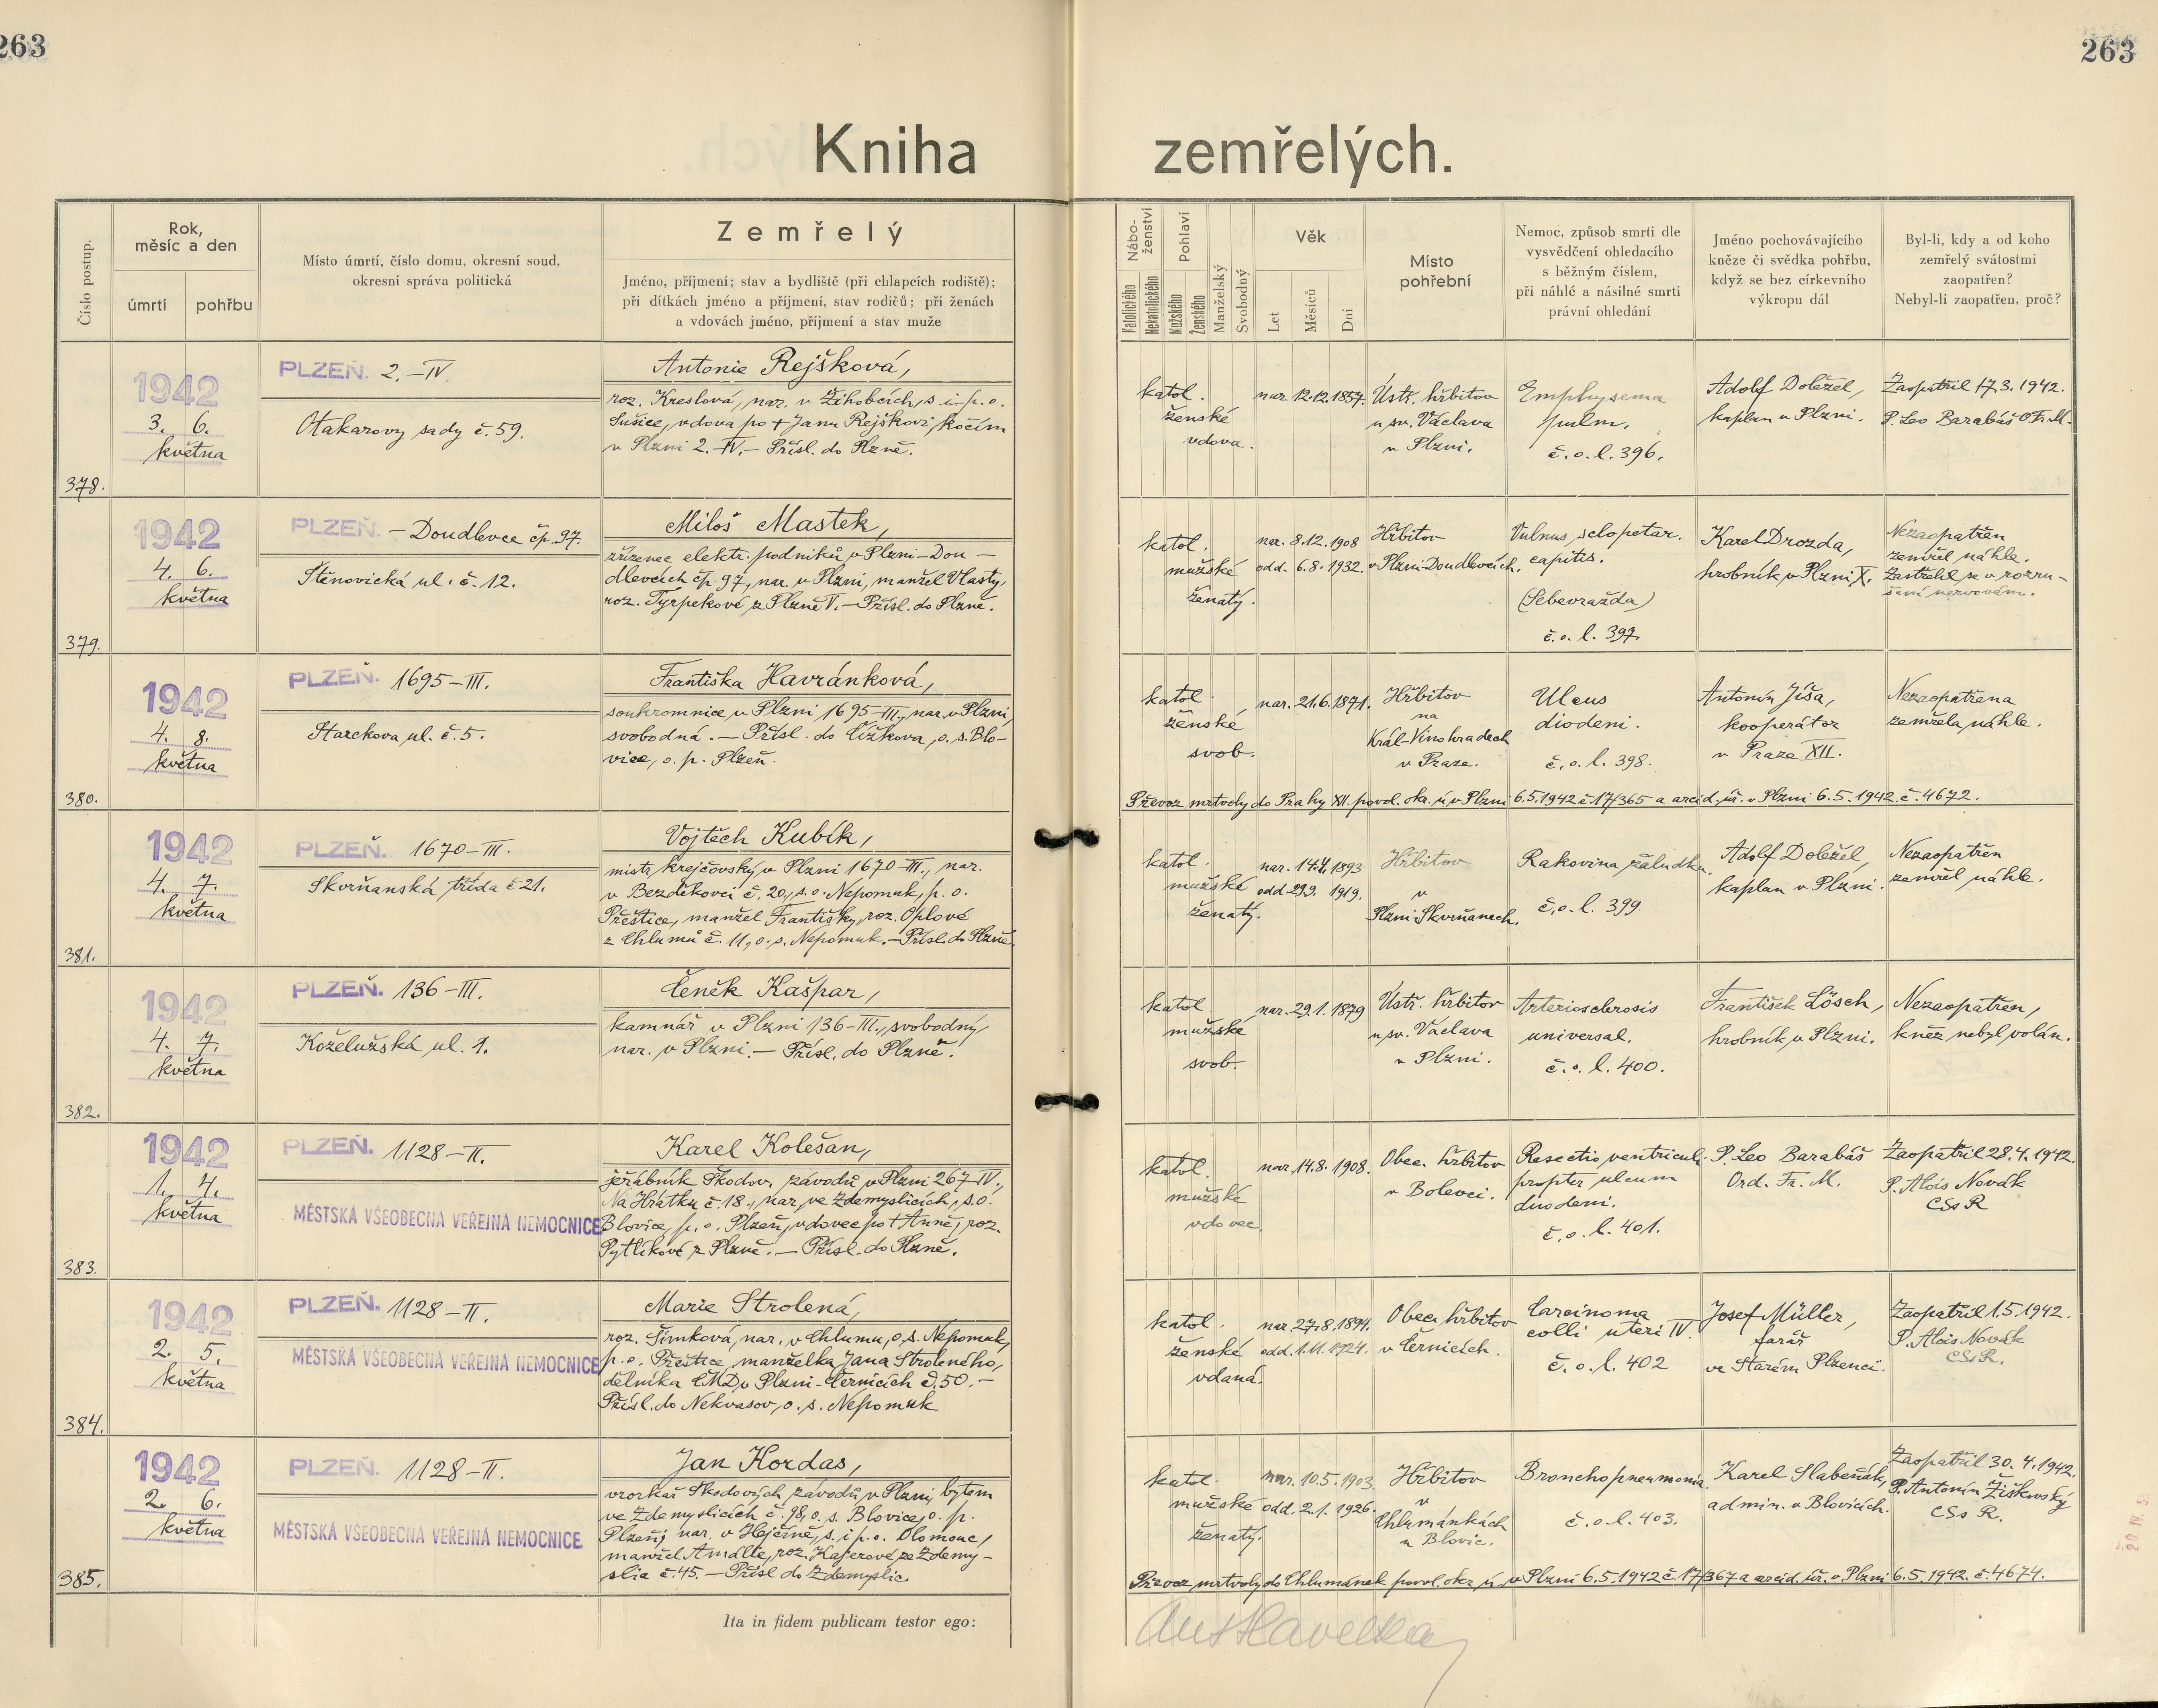 263
263
Kniha zemřelých.
Číslo postup.
Rok,
měsíc a den
úmrtí
pohřbu
Místo úmrtí, číslo domu, okresní soud,
okresní správa politická
Zemřelý
Jméno, příjmení; stav a bydliště (při chlapcích rodiště);
při dítkách jméno a příjmení, stav rodičů; při ženách
a vdovách jméno, příjmení a stav muže
Nábo-
ženství
Katolického
Nekatolického
Pohlaví
Mužského
Ženského
Manželský
Svobodný
Věk
Let
Měsíců
Dní
Místo
pohřební
Nemoc, způsob smrti dle
vysvědčení ohledacího
s běžným číslem,
při náhlé a násilné smrti
právní ohledání
Jméno pochovávajícího
kněze či svědka pohřbu,
když se bez církevního
výkropu dál
Byl-li, kdy a od koho
zemřelý svátostmi
zaopatřen?
Nebyl-li zaopatřen, proč?
378.
1942
3. 6.
května
PLZEŇ. 2.-IV.
Otakarovy sady č. 59.
Antonie Rejšková,
roz. Kreslová, nar. v Žihobcích, s. i p. o.
Sušice, vdova po + Janu Rejškovi, kočím
v Plzni 2.-IV. - Přísl. do Plzně.
katol.
ženské
vdova.
nar. 12.12.1857.
Ústř. hřbitov
u sv. Václava
v Plzni.
Emphysema
pulm.
č. o. l. 396.
Adolf Doležel,
kaplan v Plzni.
Zaopatřil 17.3.1942.
P. Leo Barabáš O.Fr.M.
379.
1942
4. 6.
května
PLZEŇ. - Doudlevce čp. 97.
Štěnovická ul. č. 12.
Miloš Mastek,
zřízenec elektr. podniků v Plzni-Dou-
dlevcích čp. 97, nar. v Plzni, manžel Vlasty,
roz. Tyrpekové z Plzně V. - Přísl. do Plzně.
katol.
mužské
ženatý.
nar. 8.12.1908
odd. 6.8.1932.
Hřbitov
v Plzni-Doudlevcích.
Vulnus sclopetar.
capitis.
(Sebevražda)
č. o. l. 397.
Karel Drozda,
hrobník v Plzni X.
Nezaopatřen
zemřel náhle.
Zastřelil se v rozru-
šení nervovém.
380.
1942
4. 8.
května
PLZEŇ. 1695-III.
Starckova ul. č. 5.
Františka Havránková,
soukromnice v Plzni 1695-III., nar. v Plzni,
svobodná. - Přísl. do Čížkova, o. s. Blo-
vice, o. p. Plzeň.
katol.
ženské
svob.
nar. 21.6.1871.
Hřbitov
na
Král-Vinohradech
v Praze.
Ulcus
diodeni.
č. o. l. 398.
Antonín Jíša,
kooperátor
v Praze XII.
Nezaopatřena
zemřela náhle.
Převoz mrtvoly do Prahy XII. povol. okr. ú. v Plzni 6.5.1942 č. 17/365 a arcid. úř. v Plzni 6.5.1942 č. 4672.
381.
1942
4. 7.
května
PLZEŇ. 1670-III.
Skvrňanská třída č 21.
Vojtěch Kubík,
mistr krejčovský v Plzni 1670-III., nar.
v Bezděkovci č. 20, s. o. Nepomuk, p. o.
Přeštice, manžel Františky, roz. Oplové
z Chlumů č. 11, o. s. Nepomuk. - Přísl. do Plzně.
katol.
mužské
ženatý.
nar. 14.4.1893
odd. 29.9. 1919.
Hřbitov
v
Plzni-Skvrňanech.
Rakovina žaludka.
č. o. l. 399.
Adolf Doležel,
kaplan v Plzni.
Nezaopatřen
zemřel náhle.
382.
1942
4. 7.
května
PLZEŇ. 136-III.
Koželužská ul. 1.
Čeněk Kašpar,
kamnář v Plzni 136-III., svobodný,
nar. v Plzni. - Přísl. do Plzně.
katol.
mužské
svob.
nar. 29.1.1879
Ústř. hřbitov
u sv. Václava
v Plzni.
Arteriosclerosis
universal.
č. o. l. 400.
František Lösch,
hrobník v Plzni.
Nezaopatřen,
kněz nebyl volán.
383.
1942
1. 4.
května
PLZEŇ. 1128-II.
MĚSTSKÁ VŠEOBECNÁ VEŘEJNÁ NEMOCNICE
Karel Kolešan,
jeřábník Škodov. závodů v Plzni 267-IV.,
Na Hrátku č. 18., nar. ve Zdemyslicích, s. o.
Blovice, p. o. Plzeň, vdovec po + Anně, roz.
Pytlíkové z Plzně. - Přísl. do Plzně.
katol.
mužské
vdovec.
nar. 14.8.1908.
Obec. hřbitov
v Bolevci.
Resectio ventriculi
propter ulcum
diodeni.
č. o. l. 401.
P. Leo Barabáš
Ord. Fr. M.
Zaopatřil 28.4.1942.
P. Alois Novák
CSsR
384.
1942
2. 5.
května
PLZEŇ. 1128-II.
MĚSTSKÁ VŠEOBECNÁ VEŘEJNÁ NEMOCNICE
Marie Strolená,
roz. Šimková, nar. v Chlumu, o. s. Nepomuk,
p. o. Přeštice, manželka Jana Stroleného,
dělníka ČMD v Plzni-Černicích č. 50. -
Přísl. do Nekvasov, o. s. Nepomuk
katol.
ženské
vdaná.
nar. 27.8.1894.
odd. 1.11.1924.
Obec. hřbitov
v Černicích.
Carcinoma
colli uteri IV.
č. o. l. 402
Josef Müller,
farář
ve Starém Plzenci.
Zaopatřil 1.5.1942.
P. Alois Novák
CSsR.
385.
1942
2. 6.
května
PLZEŇ. 1128-II.
MĚSTSKÁ VŠEOBECNÁ VEŘEJNÁ NEMOCNICE
Jan Kordas,
vrorkař Škodových závodů v Plzni, bytem
ve Zdemyslicích č. 98, o. s. Blovice, o. p.
Plzeň, nar. v Hejčíně, s. i p. o. Olomouc,
manžel Amálie, roz. Kajerové ze Zdemy-
slic č. 45. - Přísl do Zdemyslic
katol.
mužské
ženatý.
nar. 10.5.1903.
odd. 2.1.1926.
Hřbitov
v
Chlumánkách
u Blovic.
Bronchopneumonia.
č. o. l. 403.
Karel Slabeňák,
admin. v Blovicích.
Zaopatřil 30.4.1942.
P. Antonín Žiškovský
CSsR.
Převoz mrtvoly do Chlumánek povol. okr. ú. v Plzni 6.5.1942 č. 17/367 a arcid. úř. v Plzni 6.5.1942. č. 4674.
Ita in fidem publicam testor ego:
Ant Havelka